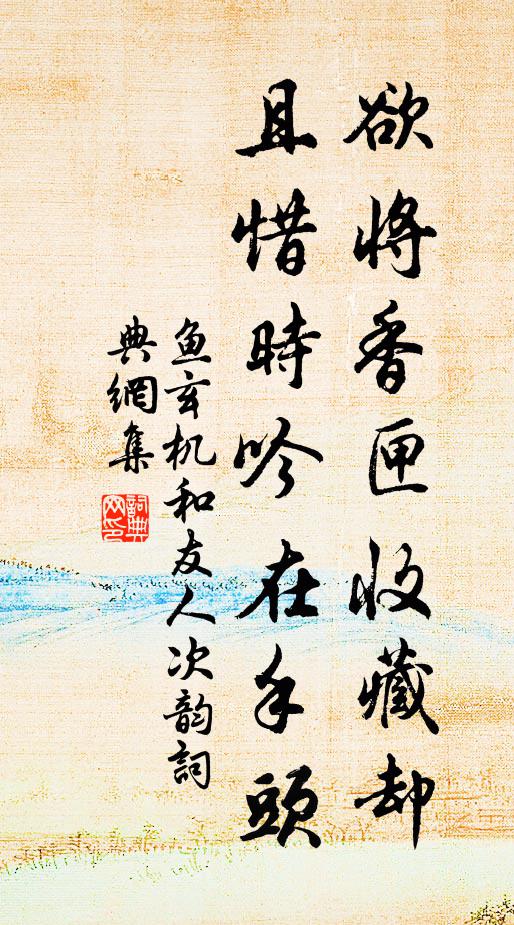 欲將香匣收藏却
且惜時吟在手頭
鱼玄机和友人次韵詞
典網集
詞典
网印